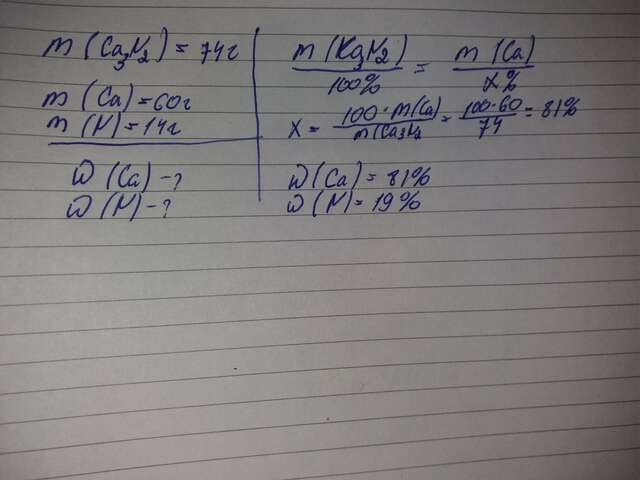 m (Ca3N2) = 74г
m (Ca) = 60г
m (N) = 14г
W (Ca) - ?
W (N) - ?
m (Ka3N2) / 100% = m (Ca) / x%
x = 100 · m(Ca) / m(Ca3N2 = 100·60 / 74 = 81%
W (Ca) = 81%
W (N) = 19%